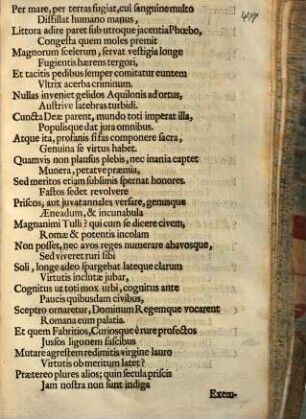 Per mare, per terras fugiat, cui sanguine multo
Distillat humano manus,
Littora adire paret sub utroque jacentia Phœbo,
Congesta quem moles premit
Magnorum scelerum, servat vestigia longe
Fugientis hærens tergori,
Et tacitis pedibus semper comitatur euntem
Vltrix acerba criminum.
Nullas inveniet gelidos Aquilonis ad ortus,
Austrive latebras turbidi.
Cuncta Deæ parent, mundo toti imperat illa,
Populisque dat jura omnibus.
Atque ita, profanis si fas componere sacra,
Genuina se virtus habet.
Quamvis non plausus plebis, nec inania captet
Munera, petatve præmia,
Sed meritos etiam sublimis spernat honores.
Fastos sedet revolvere
Priscos, aut juvat annales versare, genusque
Æneadum, & incunabula
Magnanimi Tulli? qui cum se dicere civem,
Romæ & potentis incolam
Non posset, nec avos reges numerare abavosque,
Sed viveret ruri sibi
Soli, longe adeo spargebat lateque clarum
Virtutis inclutæ jubar,
Cognitus ut toti mox urbi, cognitus ante
Paucis quibusdam civibus,
Sceptro ornaretur, Dominum Regemque vocarent
Romana eum palatia.
Et quem Fabritios, Curiosque è rure profectos
Jussos ligonem fascibus
Mutare agrestem redimitis virgine lauro
Virtutis ob meritum latet?
Prætereo plures alios; quin secula priscis
Jam nostra non sunt indiga
Exem-